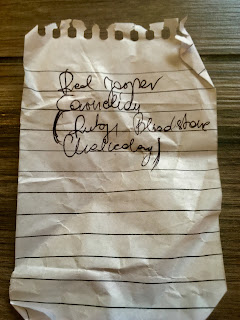 Red jasper
Carnelian
( Ruby, Bloodstone
Chalcedony)